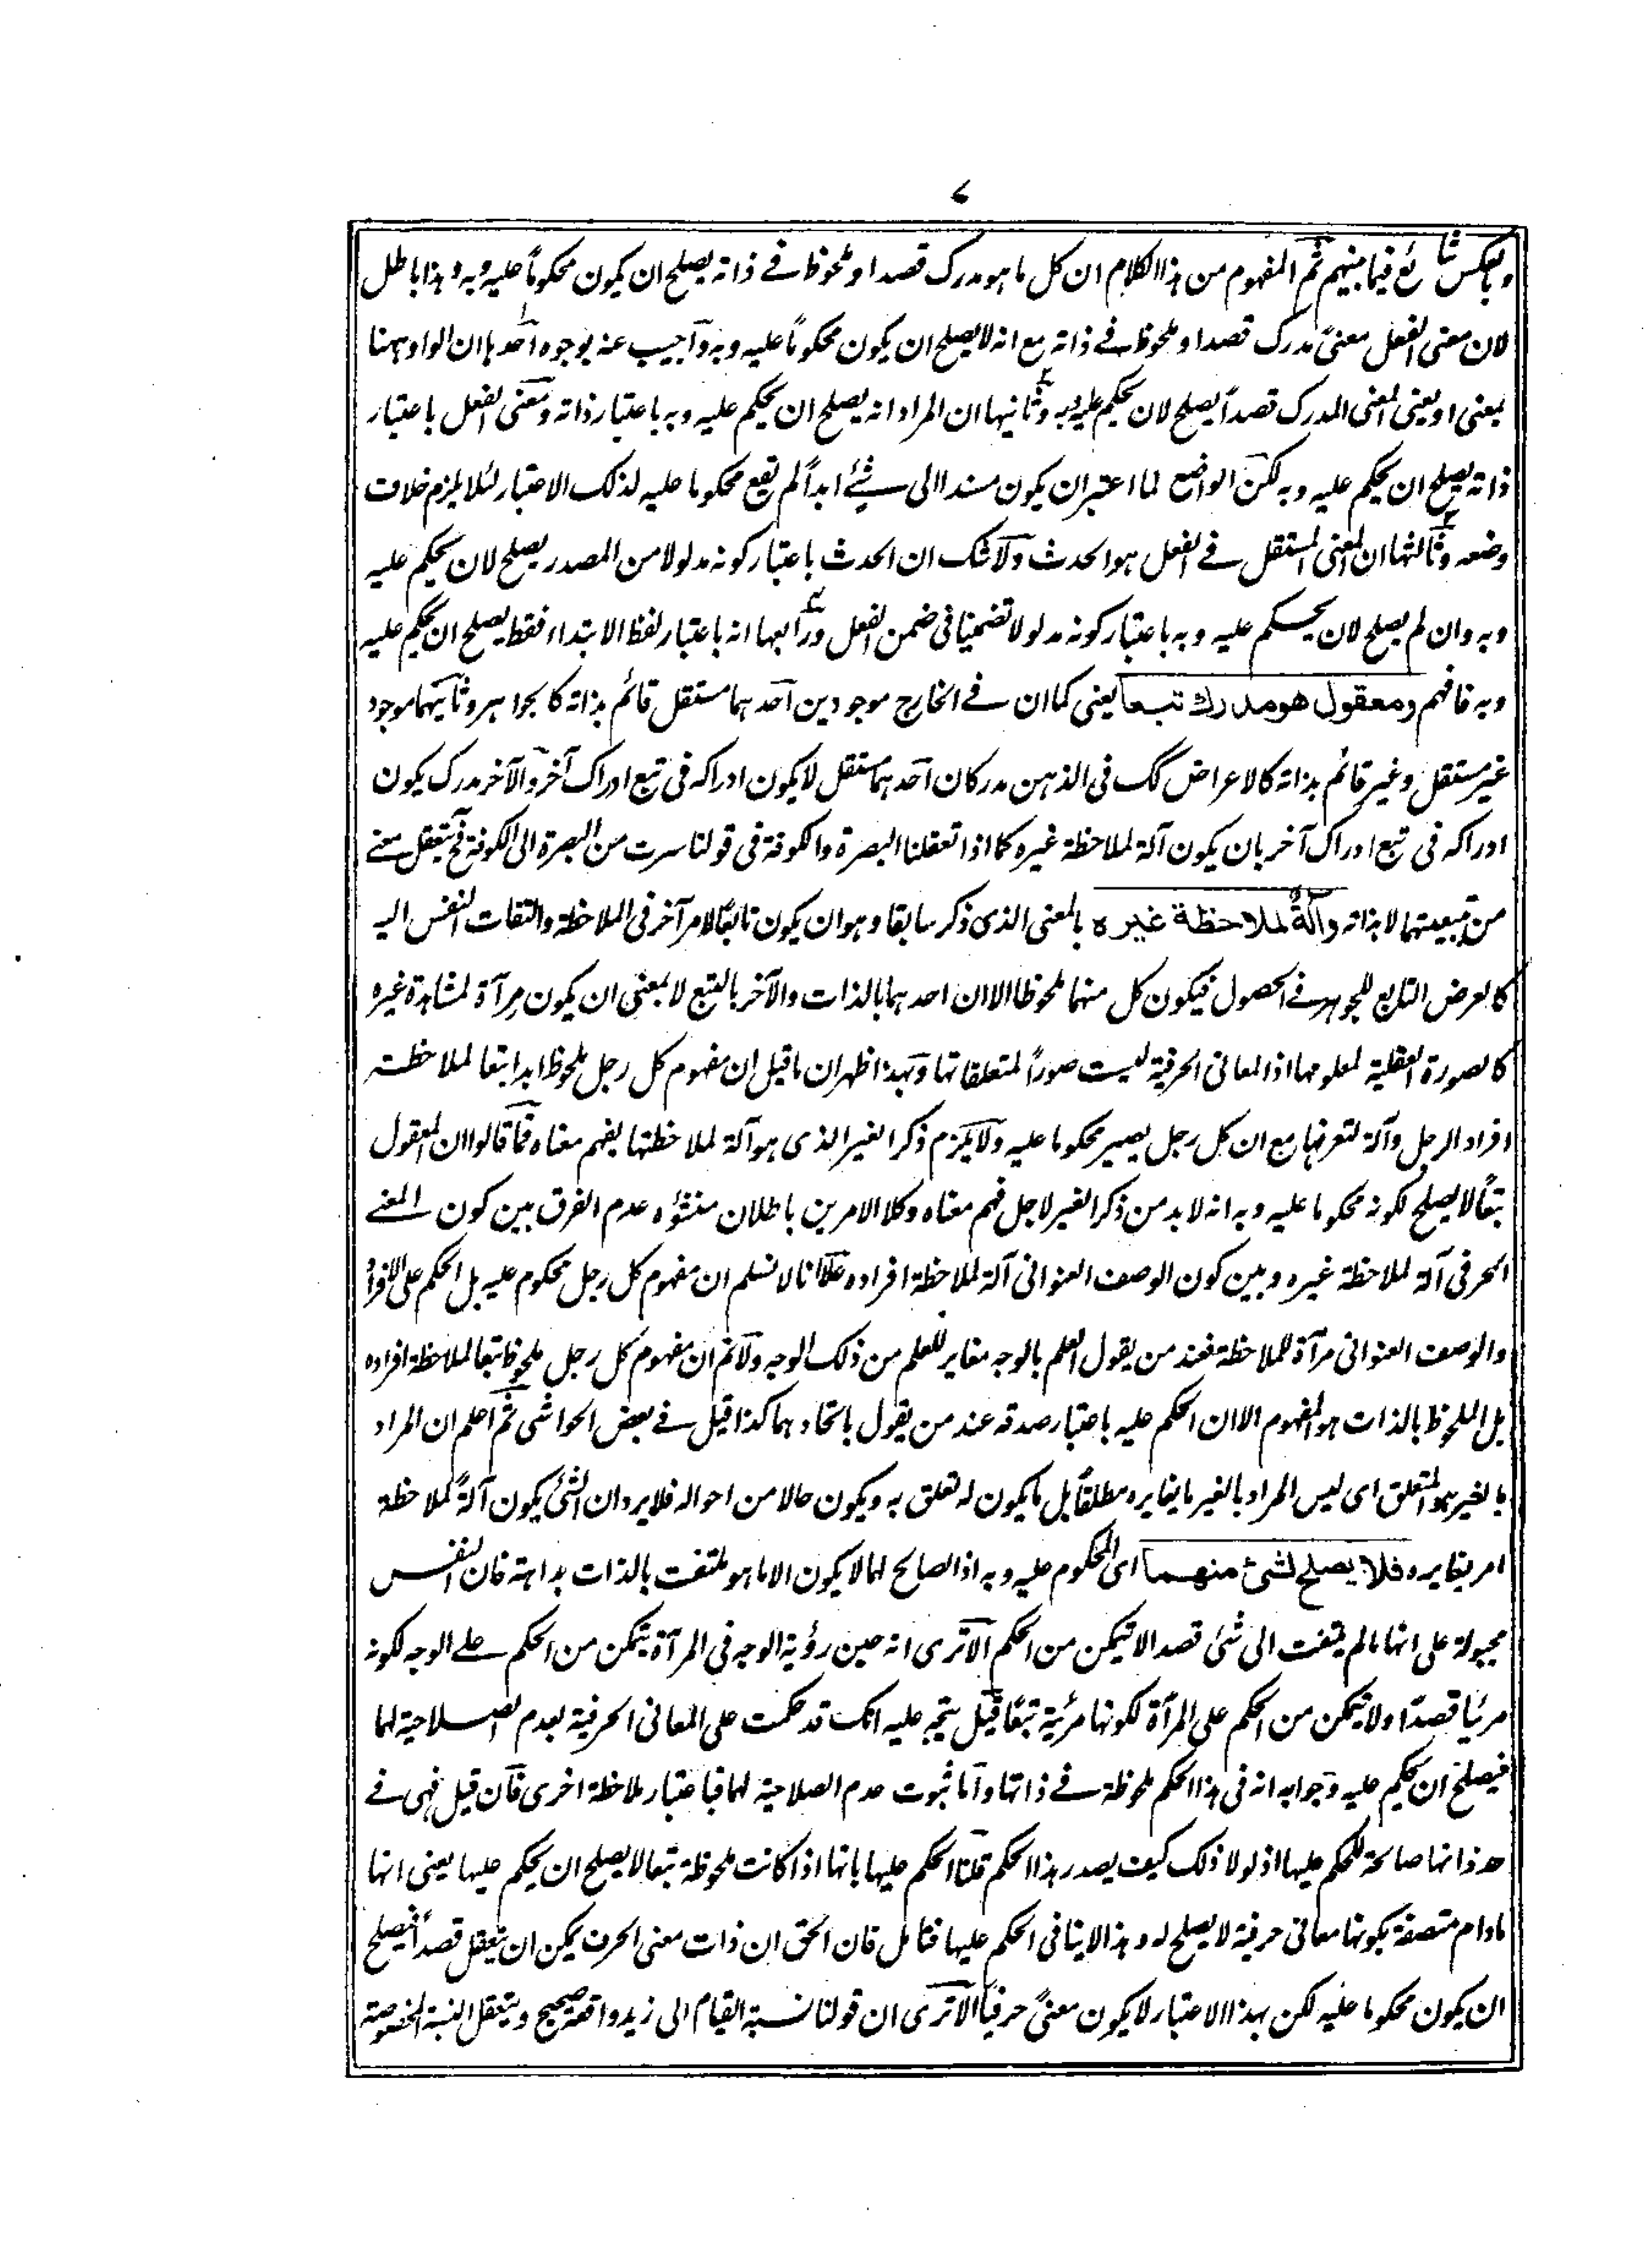 ۷
وبالعكس شائع فيما بينهم ثم المفهوم من هذا الكلام ان كل ما هو مدرك قصدا وملحوظ في ذاته يصلح ان يكون محكوماً عليه وبه وهذا باطل
لان معنى الفعل معنىً مدرك قصدا وملحوظ في ذاته مع انه لا يصلح ان يكون محكوماً عليه وبه وأجيب عنه بوجوه احدها ان الواو ههنا
بمعنى او يعنى المعنى المدرك قصداً يصلح لان يحكم عليه او به وثانيها ان المراد انه يصلح ان يحكم عليه وبه باعتبار ذاته ومعنى الفعل باعتبار
ذاته يصلح ان يحكم عليه وبه لكن الواضع لما اعتبر ان يكون مسندا الى شئ ابداً لم يقع محكوما عليه لذلك الاعتبار لئلا يلزم خلاف
وضعه وثالثها ان المعنى المستقل في الفعل هو الحدث ولا شك ان الحدث باعتبار كونه مدلولا من المصدر يصلح لان يحكم عليه
وبه وان لم يصلح لان يحكم عليه وبه باعتبار كونه مدلولا تضمنيا في ضمن الفعل ورابعها انه باعتبار لفظ الابتداء فقط يصلح ان يحكم عليه
وبه فافهم ومعقول هو مدرك تبعا يعنى كما ان في الخارج موجودين احدهما مستقل قائم بذاته كالجواهر وثانيهما موجود
غير مستقل وغير قائم بذاته كالاعراض كك في الذهن مدركان احدهما مستقل لا يكون ادراكه في تبع ادراك آخر والآخر مدرك يكون
ادراكه في تبع ادراك آخر بان يكون آلة لملاحظة غيره كما اذا تعقلنا البصرة والكوفة في قولنا سرت من البصرة الى الكوفة فح يتعقل معنى
من تبعيتهما لا بذاته وآلةٌ لملاحظة غيره بالمعنى الذى ذكر سابقا وهو ان يكون تابعًا لامر آخر في الملاحظة والتفات النفس اليه
كالعرض التابع للجوهر في الحصول فيكون كل منهما ملحوظا الا ان احدهما بالذات والآخر بالتبع لا بمعنى ان يكون مرآة لمشاهدة غيره
كالصورة العقلية لمعلومها اذ المعانى الحرفية ليست صوراً لمتعلقاتها وبهذا ظهر ان ما قيل ان مفهوم كل رجل ملحوظ ابدا تبعا لملاحظة
افراد الرجل وآلة لتعرفها مع ان كل رجل يصير محكوما عليه ولا يلزم ذكر الغير الذى هو آلة لملاحظتها يفهم معناه فما قالوا ان المعقول
تبعًا لا يصلح لكونه محكوما عليه وبه انه لا بد من ذكر الغير لاجل فهم معناه وكلا الامرين باطلان منشؤه عدم الفرق بين كون المعنى
الحرفى آلة لملاحظة غيره وبين كون الوصف العنوانى آلة لملاحظة افراده علا انا لا نسلم ان مفهوم كل رجل محكوم عليه بل الحكم على الافراد
والوصف العنوانى مرآة للملاحظة فعند من يقول العلم بالوجه مغاير للعلم من ذلك الوجه ولا نم ان مفهوم كل رجل ملحوظ تبعا لملاحظة افراده
بل الملحوظ بالذات هو المفهوم الا ان الحكم عليه باعتبار صدقه عند من يقول باتحادهما كذا قيل في بعض الحواشى ثم اعلم ان المراد
بالغير هو المتعلق اى ليس المراد بالغير ما يغايره مطلقاً بل ما يكون له تعلق به ويكون حالا من احواله فلا يرد ان الشئ يكون آلةً لملاحظة
امر يغايره فلا يصلح لشئ منهما اى المحكوم عليه وبه اذ الصالح لهما لا يكون الا ما هو ملتفت بالذات بداهة فان النفس
مجبولة على انها ما لم يلتفت الى شئ قصدا لا تتمكن من الحكم الا ترى انه حين رؤية الوجه في المرآة يتمكن من الحكم على الوجه لكونه
مرئيا قصدًا ولا يتمكن من الحكم على المرآة لكونها مرئية تبعًا قيل يتجه عليه انك قد حكمت على المعانى الحرفية بعدم الصلاحية لهما
فيصلح ان يحكم عليه وجوابه انه في هذا الحكم ملحوظة في ذاتها واما ثبوت عدم الصلاحية لهما فباعتبار ملاحظة اخرى فان قيل فهى في
حد ذاتها صالحة للحكم عليها اذ لولا ذلك كيف يصدر هذا الحكم قلنا الحكم عليها بانها اذا كانت ملحوظة تبعا لا يصلح ان يحكم عليها يعنى انها
مادام متصفة بكونها معانى حرفية لا يصلح له وهذا لا ينافى الحكم عليها فتامل فان الحق ان ذات معنى الحرف يمكن ان يتعقل قصداً فيصلح
ان يكون محكوما عليه لكن بهذا الاعتبار لا يكون معنىً حرفياً الا ترى ان قولنا نسبة القيام الى زيد واقعة صحيح ويتعقل النسبة المخصوصة